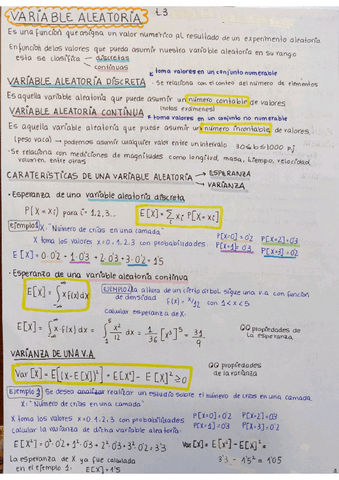 VARIABLE ALEATORIA t.3
Es una función que asigna un valor numérico al resultado de un experimento aleatorio
En función de los valores que pueda asumir nuestra variable aleatoria en su rango
esta se clasifica discretas
continuas
* toma valores en un conjunto numerable
VARIABLE ALEATORIA DISCRETA - Se relaciona con el conteo del número de elementos
Es aquella variable aleatoria que puede asumir un número contable de valores
(notas exámenes)
VARIABLE ALEATORIA CONTINUA * toma valores en un conjunto no numerable
Es aquella variable aleatoria que puede asumir un número incontable de valores.
(peso vaca) → podemos asumir cualquier valor entre un intervalo
- Se relaciona con mediciones de magnitudes como longitud, masa, tiempo, velocidad,
volumen, entre otras
CARATERÍSTICAS DE UNA VARIABLE ALEATORIA → ESPERANZA
→ VARIANZA
• Esperanza de una variable aleatoria discreta
P[X=xi] para i=1,2,3... E[X]=∑ xi P[X=xi]
Ejemplo 1: X: "Número de crías en una camada"
X toma los valores x=0,1,2,3 con probabilidades P[X=0]=0'2 P[X=2]=0'3
P[X=1]=0'3 P[X=3]=0'2
E[X]=0·0'2+1·0'3+2·0'3+3·0'2=1'5
• Esperanza de una variable aleatoria continua
E[X]=∫x f(x)dx EJEMPLO 2 la altura de un cierto árbol sigue una v.a con función
de densidad f(x)=x/12 con 1<x<5
Calcular esperanza de X:
E[X]=∫x·f(x)dx=∫x²/12 dx=1/36[x³]⁵₁=31/9
QQ propiedades de
la esperanza
VARIANZA DE UNA V.A.
Var[X]=E[(X-E[X])²]=E[X²]-E[X]²≥0
QQ propiedades
de la varianza
Ejemplo 1 Se desea realizar un estudio sobre el número de crías en una camada
X: "Número de crías en una camada"
X toma los valores x=0,1,2,3 con probabilidades P[X=0]=0'2 P[X=2]=0'3
calcular la varianza de dicha variable aleatoria: P[X=1]=0'3 P[X=3]=0'2
E[X²]=0²·0'2+1²·0'3+2²·0'3+3²·0'2=3'3 Var[X]=E[X²]-E[X]²=
La esperanza de X ya fue calculada 3'3-1'5²=1'05
en el ejemplo 1: E[X]=1'5